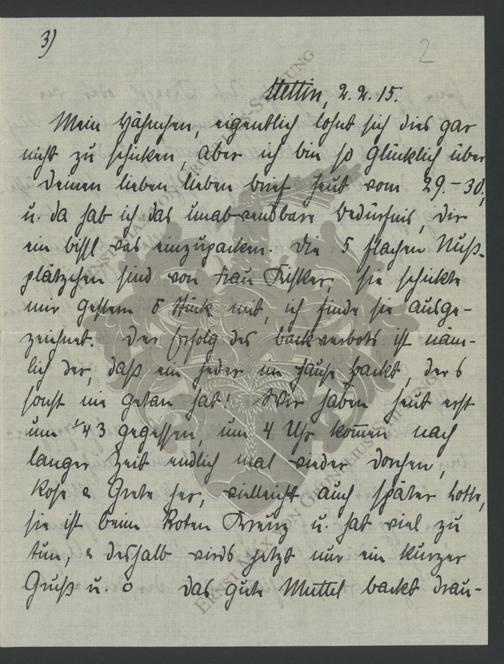 3)
2
Stettin, 2.2.15.
Mein Hähnchen, eigentlich lohnt sich dies gar
nicht zu schicken, aber ich bin so glücklich über
Deinen lieben lieben brief heut vom 29.-30,
u. da hab ich das unabwendbare bedürfnis, Dir
ein bißl was einzupacken. Die 5 flachen Nuß-
plätzchen sind von Frau sie schickte
mir gestern 6 Stück mit, ich finde sie ausge-
zeichnet. Der Erfolg des backverbots ist näm-
lich der, daß ein jeder im Hause backt, der's
sonst nie getan hat! Wir haben heut erst
um 1/4 3 gegessen, um 4 Uhr kommen nach
langer Zeit endlich mal wieder Dorchen,
Rose & Grete her, vielleicht auch später Lotte,
sie ist beim Roten Kreuz u. hat viel zu
tun, & deshalb wirds jetzt nur ein kurzer
Gruß u. o Das gute Muttel backt drau-
ERNST MAX VON GRUNELIUS-STIFTUNG